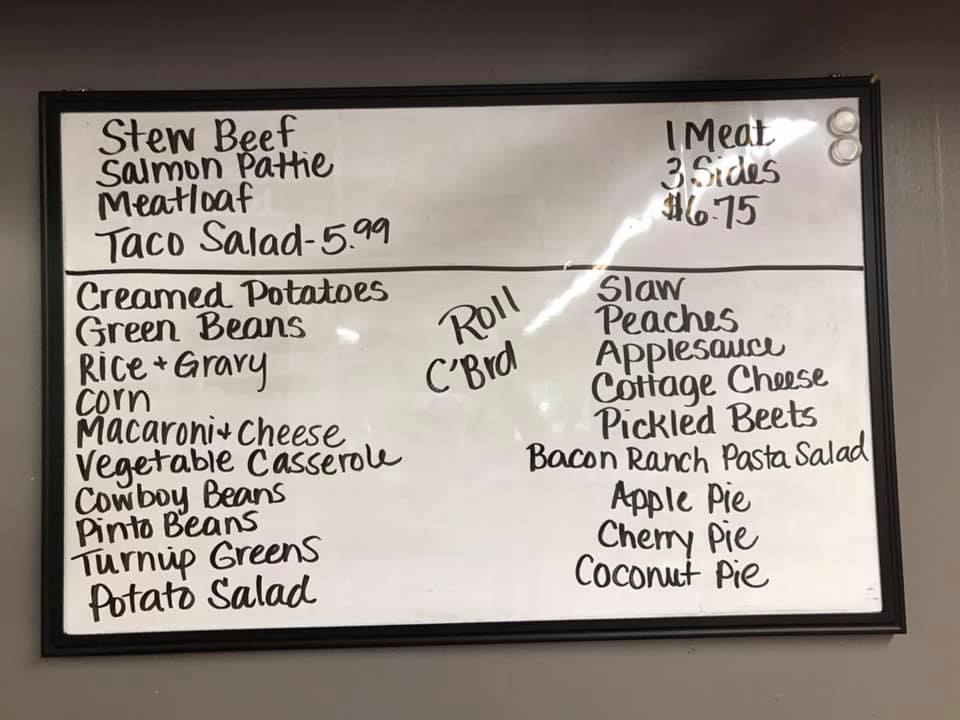 Stew Beef
Salmon Pattie
Meatloaf
Taco Salad-5.99
1 Meat
3 Sides
$6.75
Creamed Potatoes
Green Beans
Rice + Gravy
Corn
Macaroni + Cheese
Vegetable Casserole
Cowboy Beans
Pinto Beans
Turnup Greens
Potato Salad
Roll
C'Brd
Slaw
Peaches
Applesauce
Cottage Cheese
Pickled Beets
Bacon Ranch Pasta Salad
Apple Pie
Cherry Pie
Coconut Pie